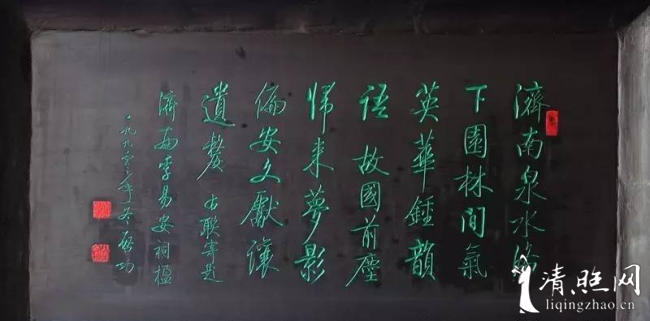 濟南泉水歷
下園林間氣
英華鍾韻
語 故國前塵
歸来夢影
偏安文獻讓
遺嫠 右聯寄題
濟南李易安祠楹
一九九年冬 啟功
清照网
liqingzhao.cn